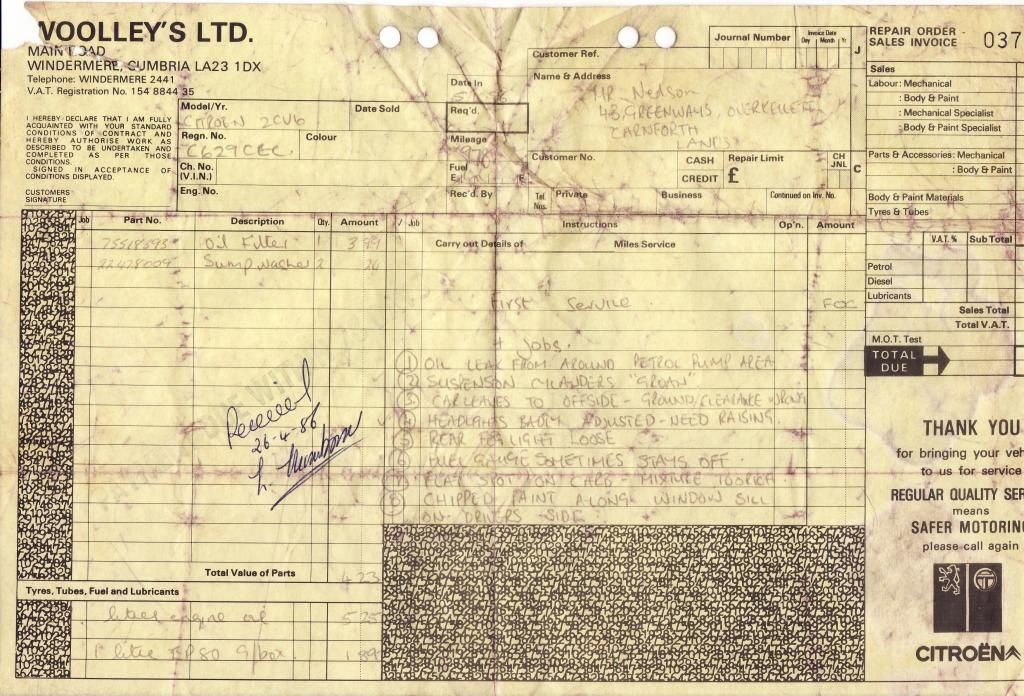 WOOLLEY'S LTD.
MAIN ROAD
WINDERMERE, CUMBRIA LA23 1DX
Telephone: WINDERMERE 2441
V.A.T. Registration No. 154 8844 35
I HEREBY DECLARE THAT I AM FULLY
ACQUAINTED WITH YOUR STANDARD
CONDITIONS OF CONTRACT AND
HEREBY AUTHORISE WORK AS
DESCRIBED TO BE UNDERTAKEN AND
COMPLETED AS PER THOSE
CONDITIONS.
SIGNED IN ACCEPTANCE OF
CONDITIONS DISPLAYED.
CUSTOMERS
SIGNATURE
Model/Yr.
CITROEN 2CV6
Date Sold
Regn. No.
C629CEC.
Colour
Ch. No.
(V.I.N.)
Eng. No.
Date In
Req'd.
Mileage
Fuel
E F
Rec'd. By
Customer Ref.
Name & Address
MR Nedson
48 GREENWAYS, OVERKELLET
CARNFORTH
LANCS
Customer No.
CASH
CREDIT
Repair Limit
£
CH
JNL
Tel.
Nos.
Private
Business
Continued on Inv. No.
Journal Number
Invoice Date
Day Month Yr
J
C
REPAIR ORDER -
SALES INVOICE
037
Sales
Labour: Mechanical
: Body & Paint
: Mechanical Specialist
: Body & Paint Specialist
Parts & Accessories: Mechanical
: Body & Paint
Body & Paint Materials
Tyres & Tubes
V.A.T. % Sub Total
Petrol
Diesel
Lubricants
Sales Total
Total V.A.T.
M.O.T. Test
TOTAL
DUE
Job Part No. Description Qty. Amount
Oil Filter 1 3 99
Sump Washer 2 24
√ Job Instructions Op'n. Amount
Carry out Details of Miles Service
First Service. FOC
+ Jobs.
1 OIL LEAK FROM AROUND PETROL PUMP AREA
2 SUSPENSON CYLANDERS "GROAN"
3 CAR LEAVES TO OFFSIDE - GROUND/CLEARANCE WRONG
4 HEADLIGHTS BADLY ADJUSTED - NEED RAISING.
5 REAR FOGLIGHT LOOSE
6 FUEL GAUGE SOMETIMES STAYS OFF.
7 FLAT SPOT ON CARB - MIXTURE TOO RICH.
8 CHIPPED PAINT ALONG WINDOW SILL
ON DRIVERS SIDE
Received
26-4-86
Total Value of Parts
4 23
Tyres, Tubes, Fuel and Lubricants
litres engine oil 5 25
1 litre EP80 G/box. 1 89
THANK YOU
for bringing your veh
to us for service
REGULAR QUALITY SER
means
SAFER MOTORING
please call again
CITROËN